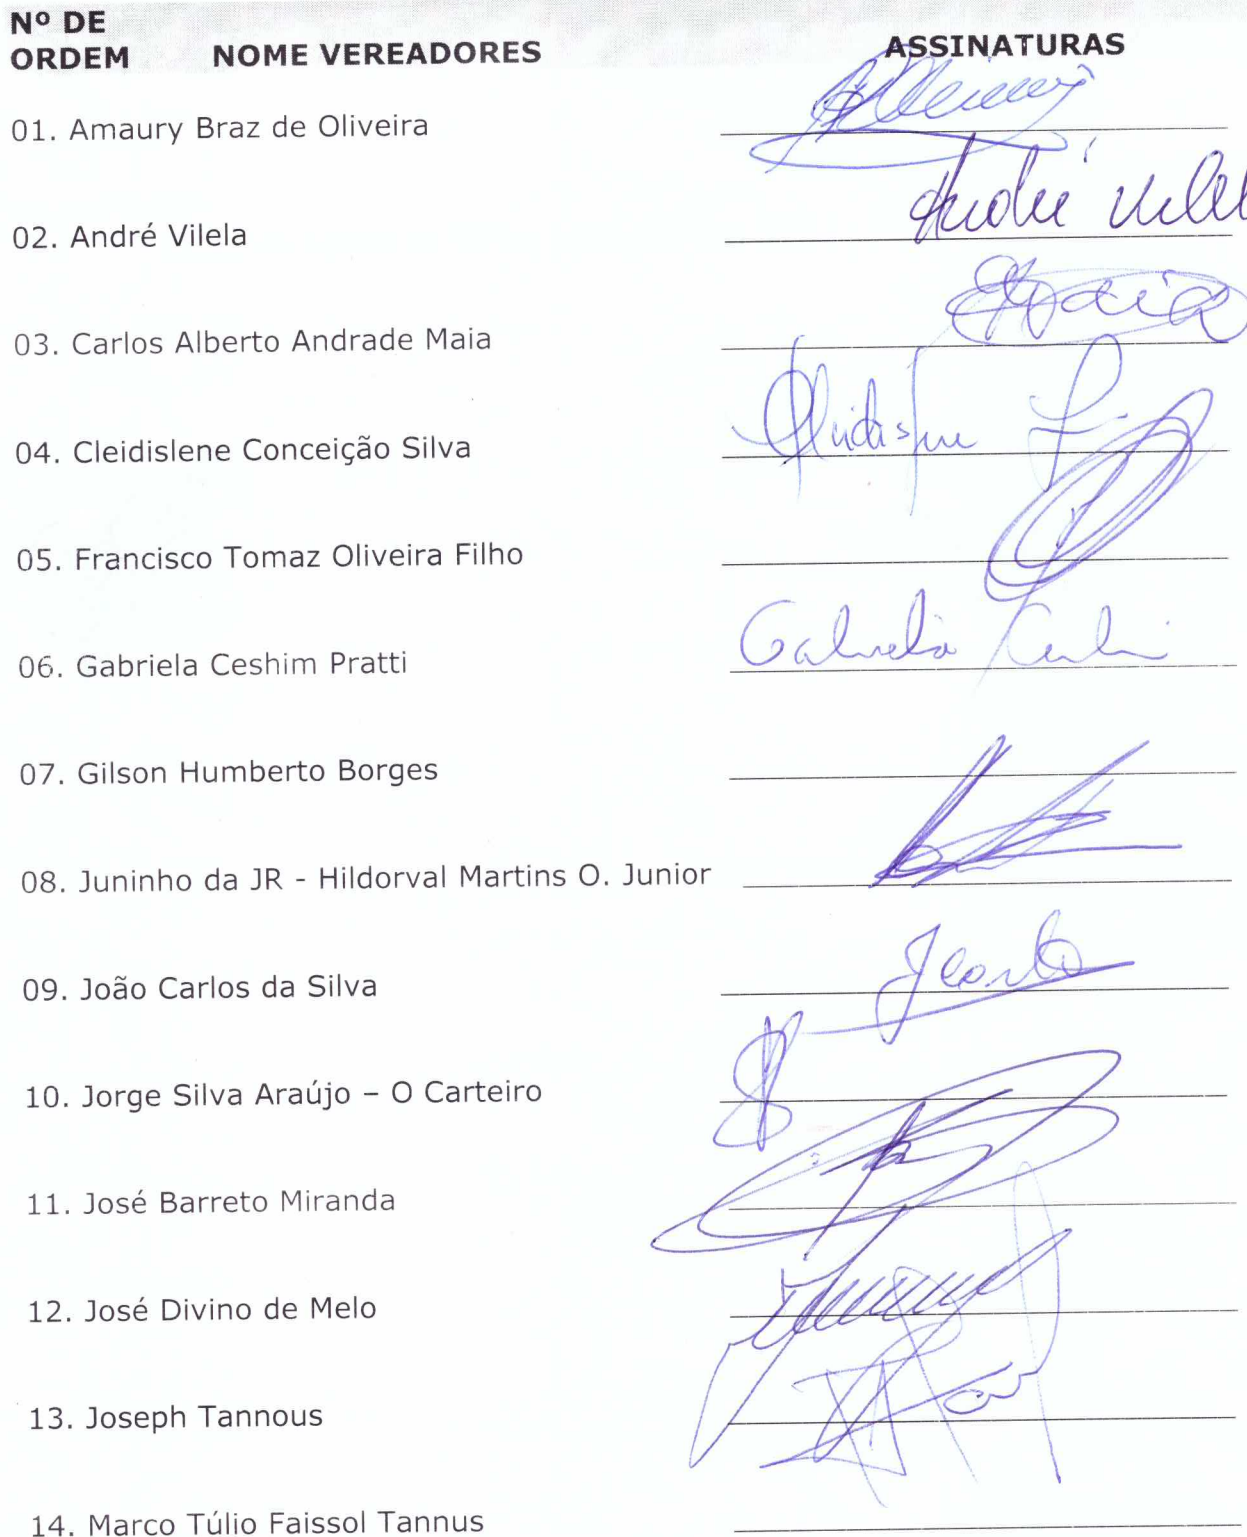 Nº DE
ORDEM NOME VEREADORES ASSINATURAS
01. Amaury Braz de Oliveira
02. André Vilela André Vilel
03. Carlos Alberto Andrade Maia
04. Cleidislene Conceição Silva
05. Francisco Tomaz Oliveira Filho
06. Gabriela Ceshim Pratti Gabriela
07. Gilson Humberto Borges
08. Juninho da JR - Hildorval Martins O. Junior
09. João Carlos da Silva
10. Jorge Silva Araújo – O Carteiro
11. José Barreto Miranda
12. José Divino de Melo
13. Joseph Tannous
14. Marco Túlio Faissol Tannus